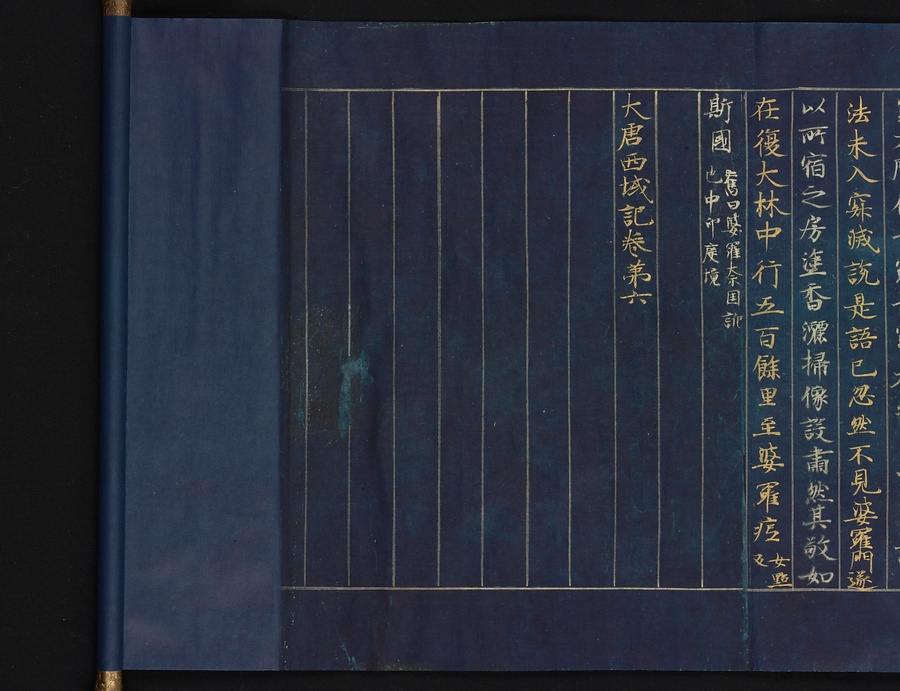 法未入寂滅說是語已忽然不見婆羅門遂
以所宿之房塗香灑掃像設肅然其敬如
在復大林中行五百餘里至婆羅痆女黠反
斯國舊曰婆羅奈国訛也中印度境
大唐西域記卷第六